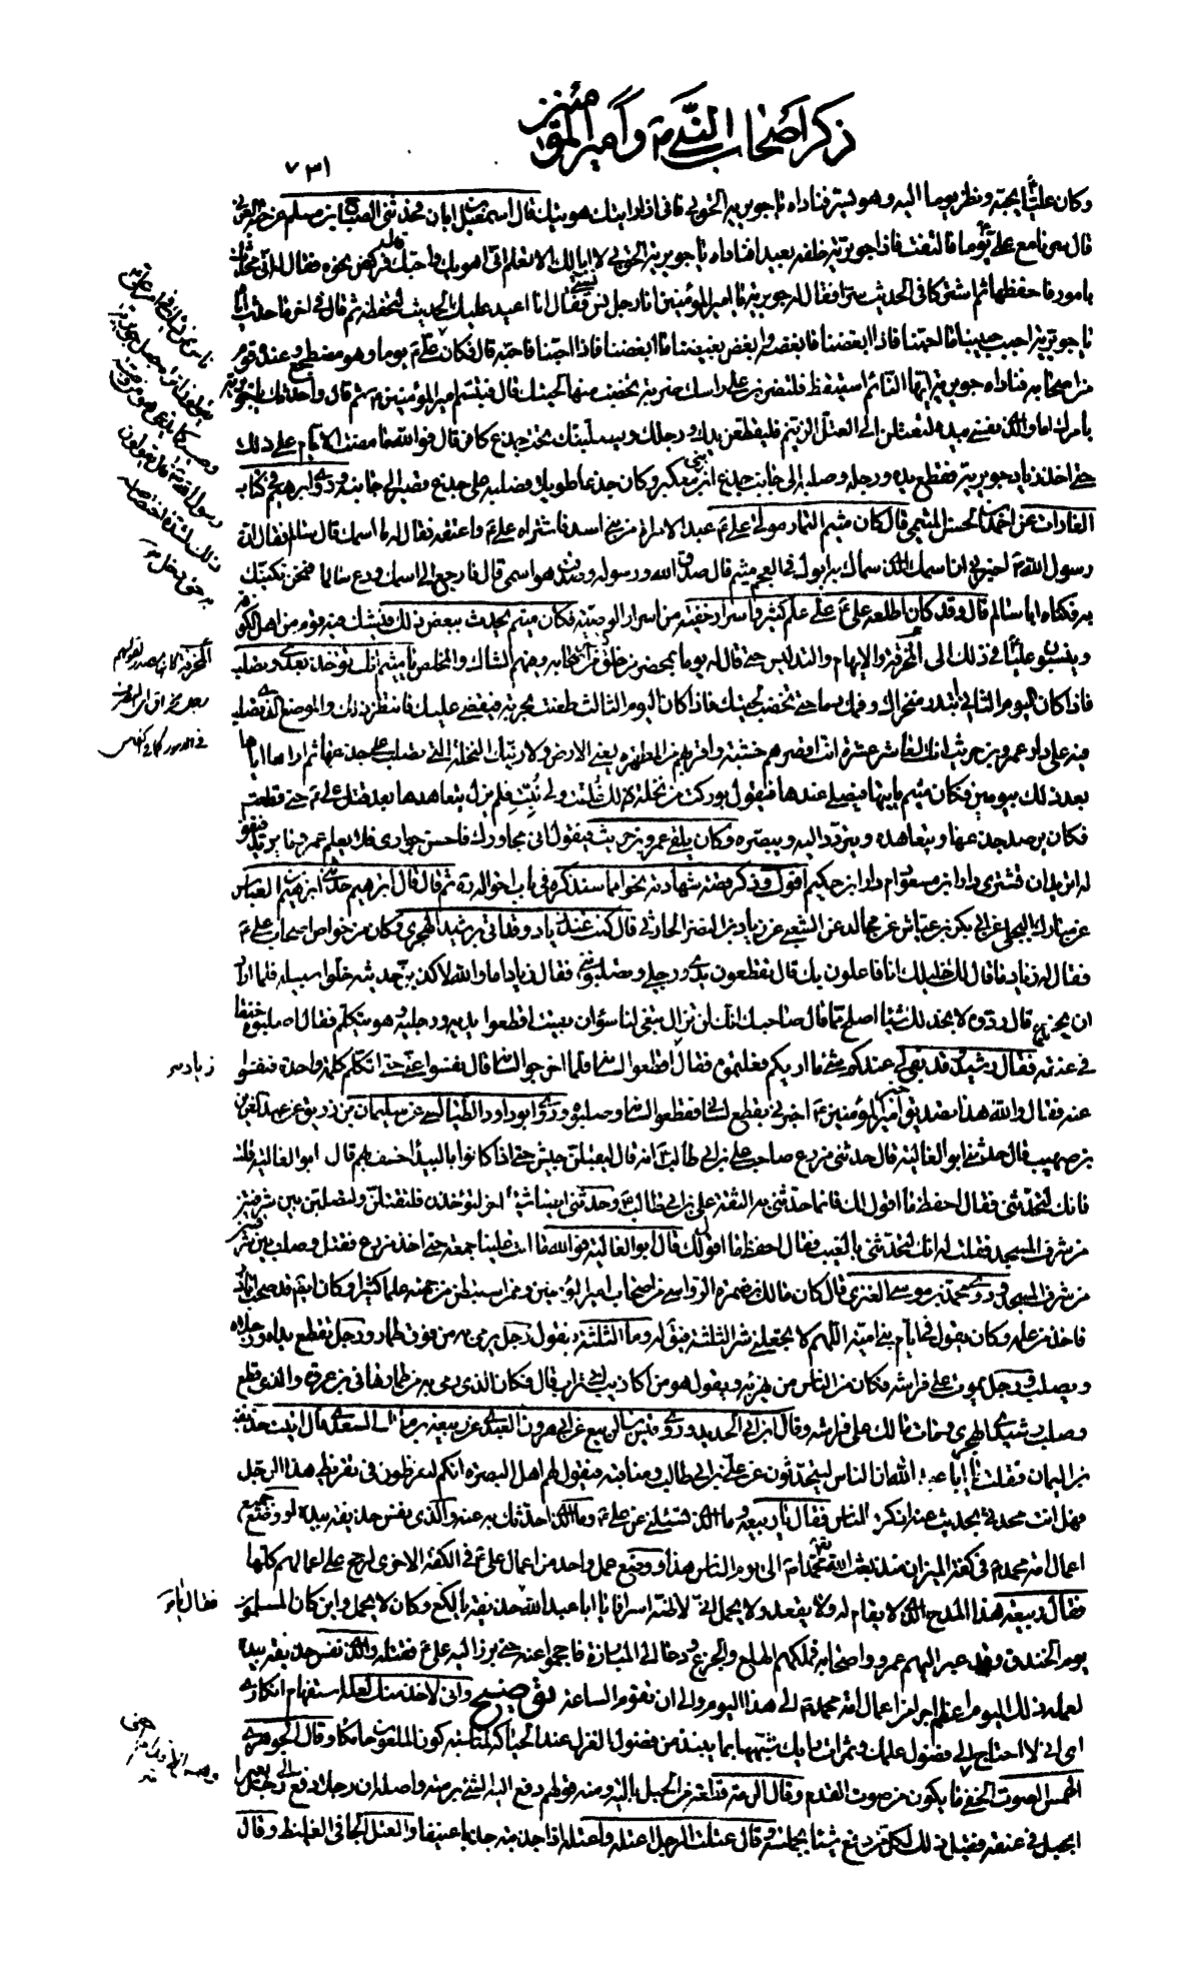 ذكر اصحاب النبي ص وامير المؤمنين
٧٣١
وكان علي ع يحبه ونظر يوما اليه وهو يسير فناداه يا جويرية الحق بي فاني اذا رايتك هويتك قال اسمعيل بن ابان فحدثني الصباح بن مسلم عن حبة العرني
قال سرنا مع علي ع يوما فالتفت فاذا جويرية خلفه بعيدا فناداه يا جويرية الحق بي لا ابا لك الا تعلم اني اهويك واحبك فركض نحوه فقال له اني محدثك
بامور فاحفظها ثم اشتركا في الحديث سرا فقال له جويرية يا امير المؤمنين انا رجل نسي فقال انا اعيد عليك الحديث لتحفظه ثم قال في اخر ما حدثه اياه
يا جويرية احبب حبيبنا ما احبنا فاذا ابغضنا فابغضه وابغض بغيضنا ما ابغضنا فاذا احبنا فاحبه قال فكان علي ع يوما وهو مضطجع وعنده قوم
من اصحابه فناداه جويرية ايها النائم استيقظ فلتضربن على راسك ضربة تخضب منها لحيتك قال فتبسم امير المؤمنين ع ثم قال واحدثك يا جويرية
بامرك اما والذي نفسي بيده لتعتلن الى العتل الزنيم فليقطعن يدك ورجلك وليصلبنك تحت جذع كافر قال فوالله ما مضت الايام على ذلك
حتى اخذ زياد جويرية فقطع يده ورجله وصلبه الى جانب جذع ابن معكبر وكان جذعا طويلا فصلبه على جذع قصير الى جانبه وروى ابرهيم في كتاب
الغارات عن احمد بن الحسن الميثمي قال كان ميثم التمار مولى علي ع عبدا لامراة من بني اسد فاشتراه علي ع واعتقه فقال له ما اسمك قال سالم فقال ان
رسول الله ص اخبرني ان اسمك الذي سماك به ابوك في العجم ميثم قال صدق الله ورسوله وصدقت هو اسمي قال فارجع الى اسمك ودع سالما فنحن نكنيك
به فكناه ابا سالم قال وقد كان اطلعه علي ع على علم كثير واسرار خفية من اسرار الوصية فكان ميثم يحدث ببعض ذلك فيشك فيه قوم من اهل الكوفة
وينسبون عليا في ذلك الى المخرقة والايهام والتدليس حتى قال له يوما بمحضر من خلق من اصحابه وفيهم الشاك والمخلص يا ميثم انك تؤخذ بعدي وتصلب
فاذا كان اليوم الثاني ابتدر منخراك وفمك دما حتى تخضب لحيتك فاذا كان اليوم الثالث طعنت بحربة فيقضى عليك فانتظر ذلك والموضع الذي تصلب
فيه على باب دار عمرو بن حريث انك لعاشر عشرة انت اقصرهم خشبة واقربهم من المطهرة يعني الارض ولارينك النخلة التي تصلب على جذعها ثم اراه اياها
بعد ذلك بيومين فكان ميثم ياتيها فيصلي عندها فيقول بوركت من نخلة لك خلقت ولي نبت فلم يزل يتعاهدها بعد قتل علي ع حتى قطعت
فكان يرصد جذعها ويتعاهده ويتردد اليه ويبصره وكان يلقى عمرو بن حريث فيقول اني مجاورك فاحسن جواري فلا يعلم عمرو ما يريد فيقول
له اتريد ان تشتري دار ابن مسعود ام دار ابن حكيم اقول وذكر قصة شهادته نحوا مما سنذكره في باب احواله ره ثم قال قال ابرهيم حدثني ابرهيم بن العباس
عن مبارك البجلي عن ابي بكر بن عياش عن مجالد عن الشعبي عن زياد بن النصر الحارثي قال كنت عند زياد وقد اتي برشيد الهجري وكان من خواص اصحاب علي ع
فقال له زياد ما قال لك خليلك انا فاعلون بك قال تقطعون يدي ورجلي وتصلبونني فقال زياد اما والله لاكذبن حديثه خلوا سبيله فلما اراد
ان يخرج قال ردوه لا نجد لك شيئا اصلح مما قال صاحبك انك لن تزال تبغي لنا سوءا ان بقيت اقطعوا يديه ورجليه وهو يتكلم فقال اصلبوه خنقا
في عنقه فقال رشيد وقد بقي لي عندكم شيء ما اريكم فعلتموه فقال اقطعوا لسانه فلما اخرجوا لسانه قال نفسوا عني حتى اتكلم كلمة واحدة فنفسوا
عنه فقال والله هذا تصديق خبر امير المؤمنين ع اخبرني بقطع لساني فقطعوا لسانه وصلبوه وروى ابو داود الطيالسي عن سليمان بن زريق عن عبد العزيز
بن صهيب قال حدثني ابو العالية قال حدثني مزرع صاحب علي بن ابي طالب ع انه قال ليقبلن جيش حتى اذا كانوا بالبيداء خسف بهم قال ابو العالية فقلت
فانك لتحدثني فقال احفظ ما اقول لك فانما حدثني به الثقة علي بن ابي طالب ع وحدثني ايضا شيئا اخر لتؤخذن فلتقتلن ولتصلبن بين شرفتين
من شرف المسجد فقلت له انك لتحدثني بالغيب فقال احفظ ما اقول لك قال ابو العالية فوالله ما اتت علينا جمعة حتى اخذ مزرع فقتل وصلب بين شرفتين
من شرف المسجد وروى محمد بن موسى العنزي قال كان مالك بن ضمرة الرواسي من اصحاب امير المؤمنين وممن استبطن من جهته علما كثيرا وكان ايضا قد صحب اباذر
فاخذ من علمه وكان يقول في ايام بني امية اللهم لا تجعلني شر الثلثة فيقال له وما الثلثة فيقول رجل يرمى به من فوق طمار ورجل تقطع يداه ورجلاه
ويصلب ورجل يموت على فراشه فكان من الناس من يهزء به ويقول هو من اكاذيب ابي تراب قال فكان الذي رمي به من طمار هاني بن عروة والذي قطع
وصلب رشيد الهجري ومات مالك على فراشه وقال ابن ابي الحديد وروى قيس بن الربيع عن ابي هرون العبدي عن ربيعة بن مالك السعدي قال اتيت حذيفة
بن اليمان فقلت يا ابا عبد الله ان الناس ليتحدثون عن علي بن ابي طالب ومناقبه فيقول لهم اهل البصرة انكم لتفرطون في تقريظ هذا الرجل
فهل انت محدثي بحديث عنه اذكره للناس فقال يا ربيعة وما الذي تسئلني عن علي ع وما الذي احدثك به عنه والذي نفس حذيفة بيده لو وضع جميع
اعمال امة محمد ص في كفة الميزان منذ بعث الله محمدا ص الى يوم الناس هذا ووضع عمل واحد من اعمال علي ع في الكفة الاخرى لرجح على اعمالهم كلها
فقال ربيعة هذا المدح الذي لا يقام له ولا يقعد ولا يحمل اني لاظنه اسرافا يا ابا عبد الله فقال حذيفة يا لكع وكيف لا يحمل واين كان المسلمون
يوم الخندق وقد عبر اليهم عمرو واصحابه فملكهم الهلع والجزع ودعا الى المبارزة فاحجموا عنه حتى برز اليه علي ع فقتله والذي نفس حذيفة بيده
لعمله ذلك اليوم اعظم اجرا من اعمال امة محمد ص الى هذا اليوم والى ان تقوم الساعة توضيح
اي اني لا احتاج الى فضول علمك
الهمس الصوت الخفي ما يكون من صوت القدم وقال الرمة قطعة من الحبل بالية ومنه قولهم دفع اليه الشيء برمته واصله ان رجلا دفع الى رجل بعيرا
بحبل في عنقه فقيل ذلك لكل من دفع شيئا بجملته وقال عتلت الرجل اعتله واعتله اذا جذبته جذبا عنيفا والعتل الجافي الغليظ وقال
زياد
فقال